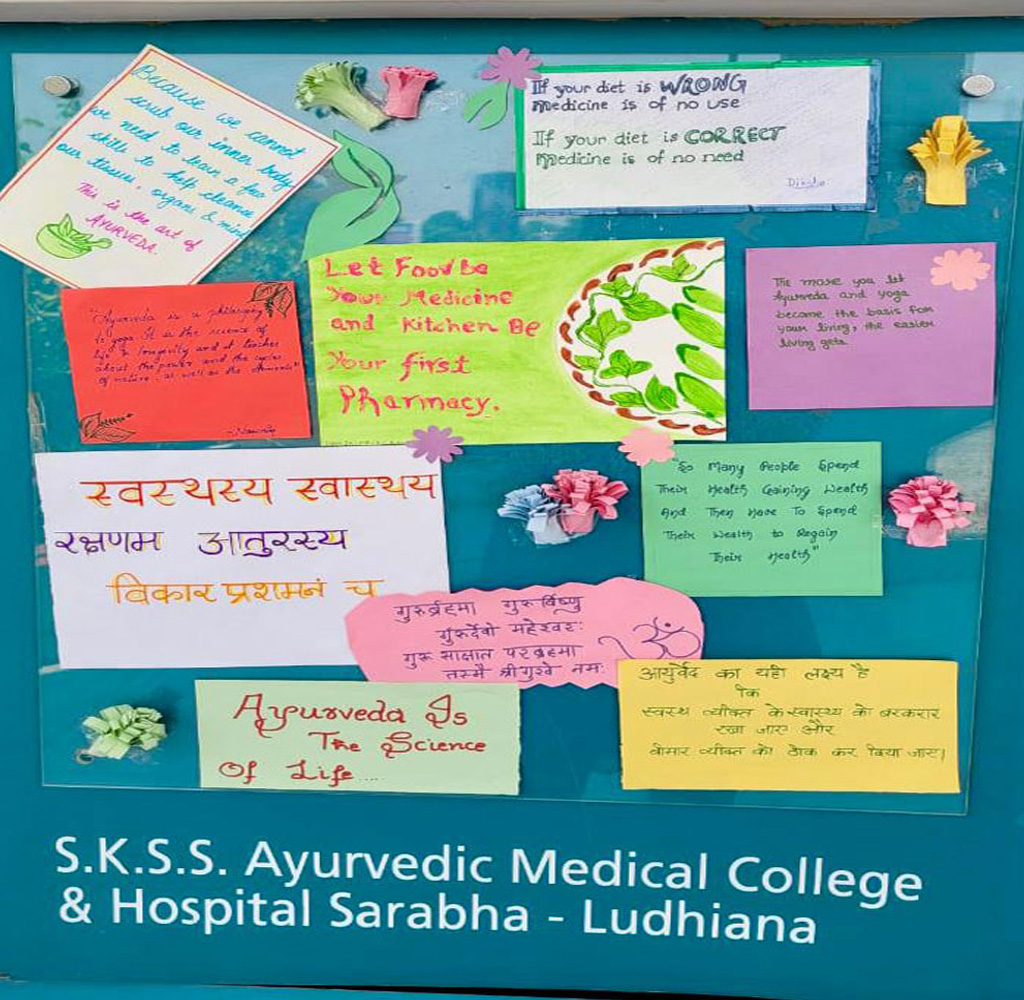 Because we cannot
scrub our inner body
we need to learn a few
skills to help cleanse
our tissues, organs & mind
This is the art of
AYURVEDA.
If your diet is WRONG
medicine is of no use
If your diet is CORRECT
medicine is of no need
"Ayurveda is a philosophy
is yoga. It is the science of
life & longevity and it teaches
about the power and the cycles
of nature, as well as the elements"
Let Food be
Your Medicine
and Kitchen Be
Your first
Pharmacy.
The more you let
Ayurveda and yoga
become the basis for
your living, the easier
living gets.
स्वस्थस्य स्वास्थय
रक्षणम आतुरस्य
विकार प्रशमनं च
"So Many People Spend
Their Health Gaining Wealth
And Then Have To Spend
Their Wealth to Regain
Their Health"
गुरुर्ब्रहमा गुरुर्विष्णु
गुरुर्देवो महेश्वरः
गुरू साक्षात परब्रहमा
तस्मै श्री गुरवे नमः
ॐ
Ayurveda Is
The Science
Of Life....
आयुर्वेद का यही लक्ष्य है
कि
स्वस्थ व्यक्ति के स्वास्थ्य को बरकरार
रखा जाए और
बीमार व्यक्ति को ठीक कर दिया जाए।
S.K.S.S. Ayurvedic Medical College
& Hospital Sarabha - Ludhiana